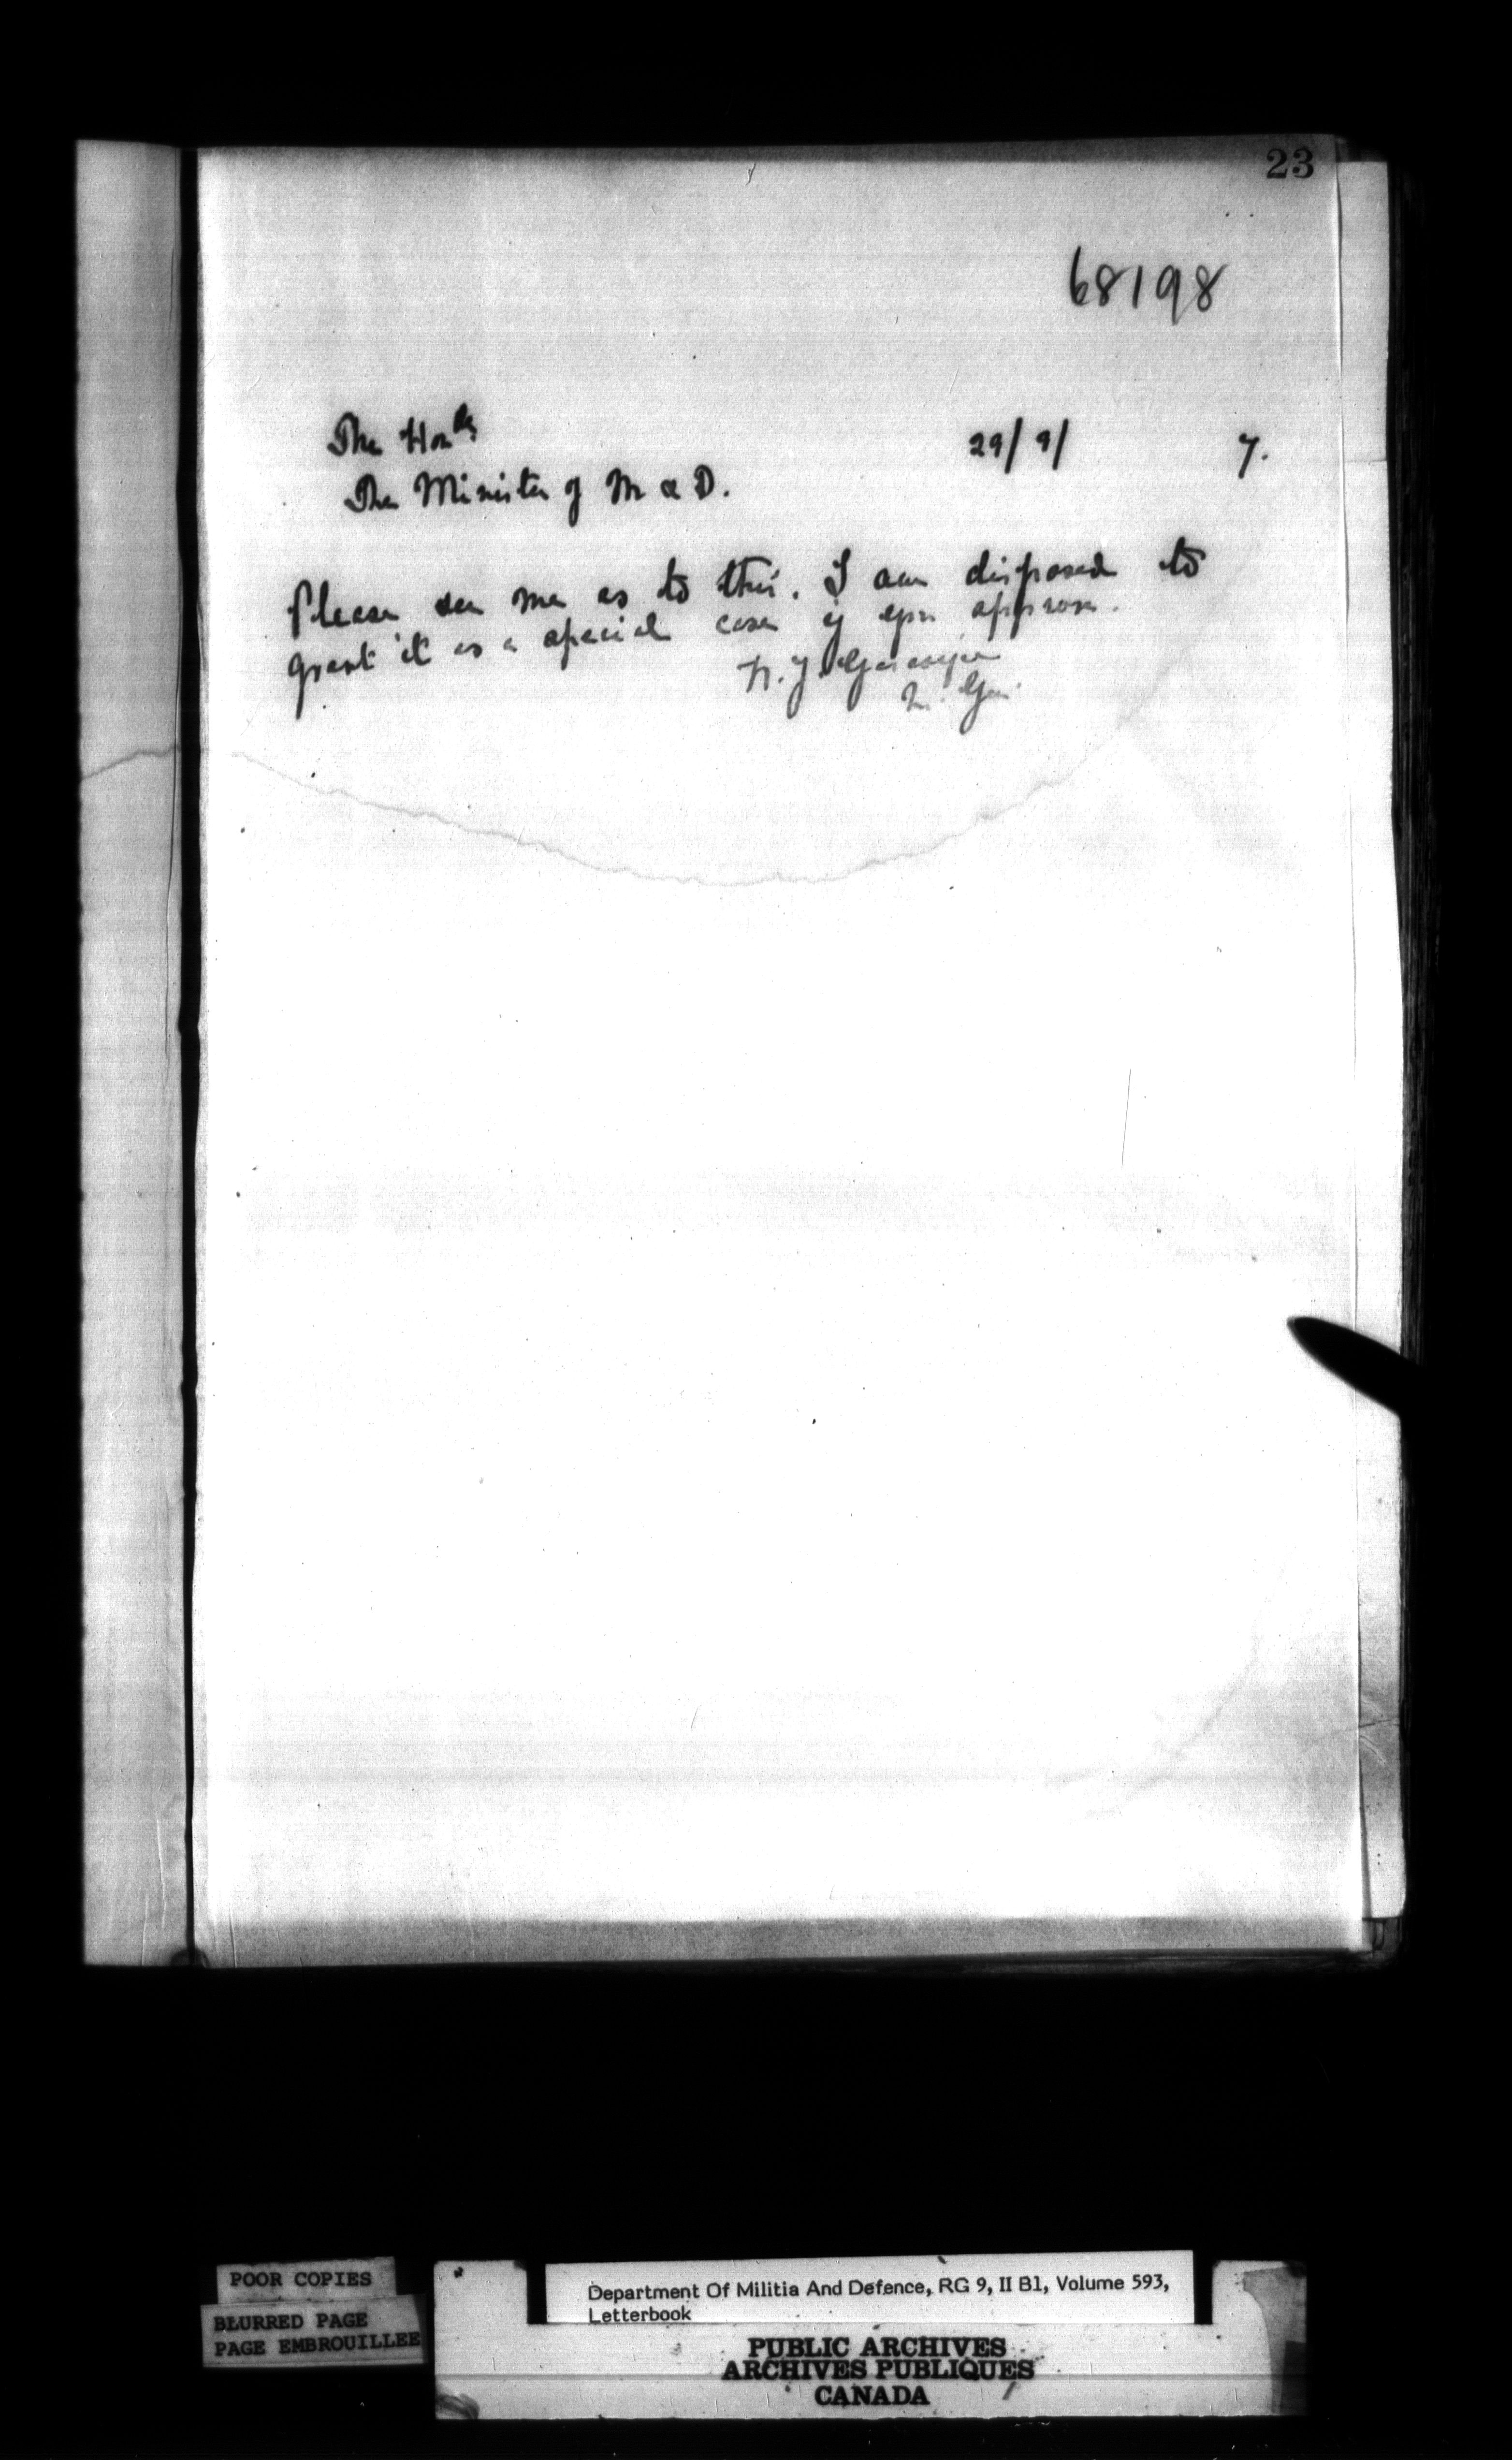 23
68198
The Honble
29/9/ 7.
The Minister of M & D.
Please see me as to this. I am disposed to
grant it as a special case if you approve.
M. Gen.
POOR COPIES
BLURRED PAGE
PAGE EMBROUILLEE
Department Of Militia And Defence, RG 9, II B1, Volume 593,
Letterbook
PUBLIC ARCHIVES
ARCHIVES PUBLIQUES
CANADA